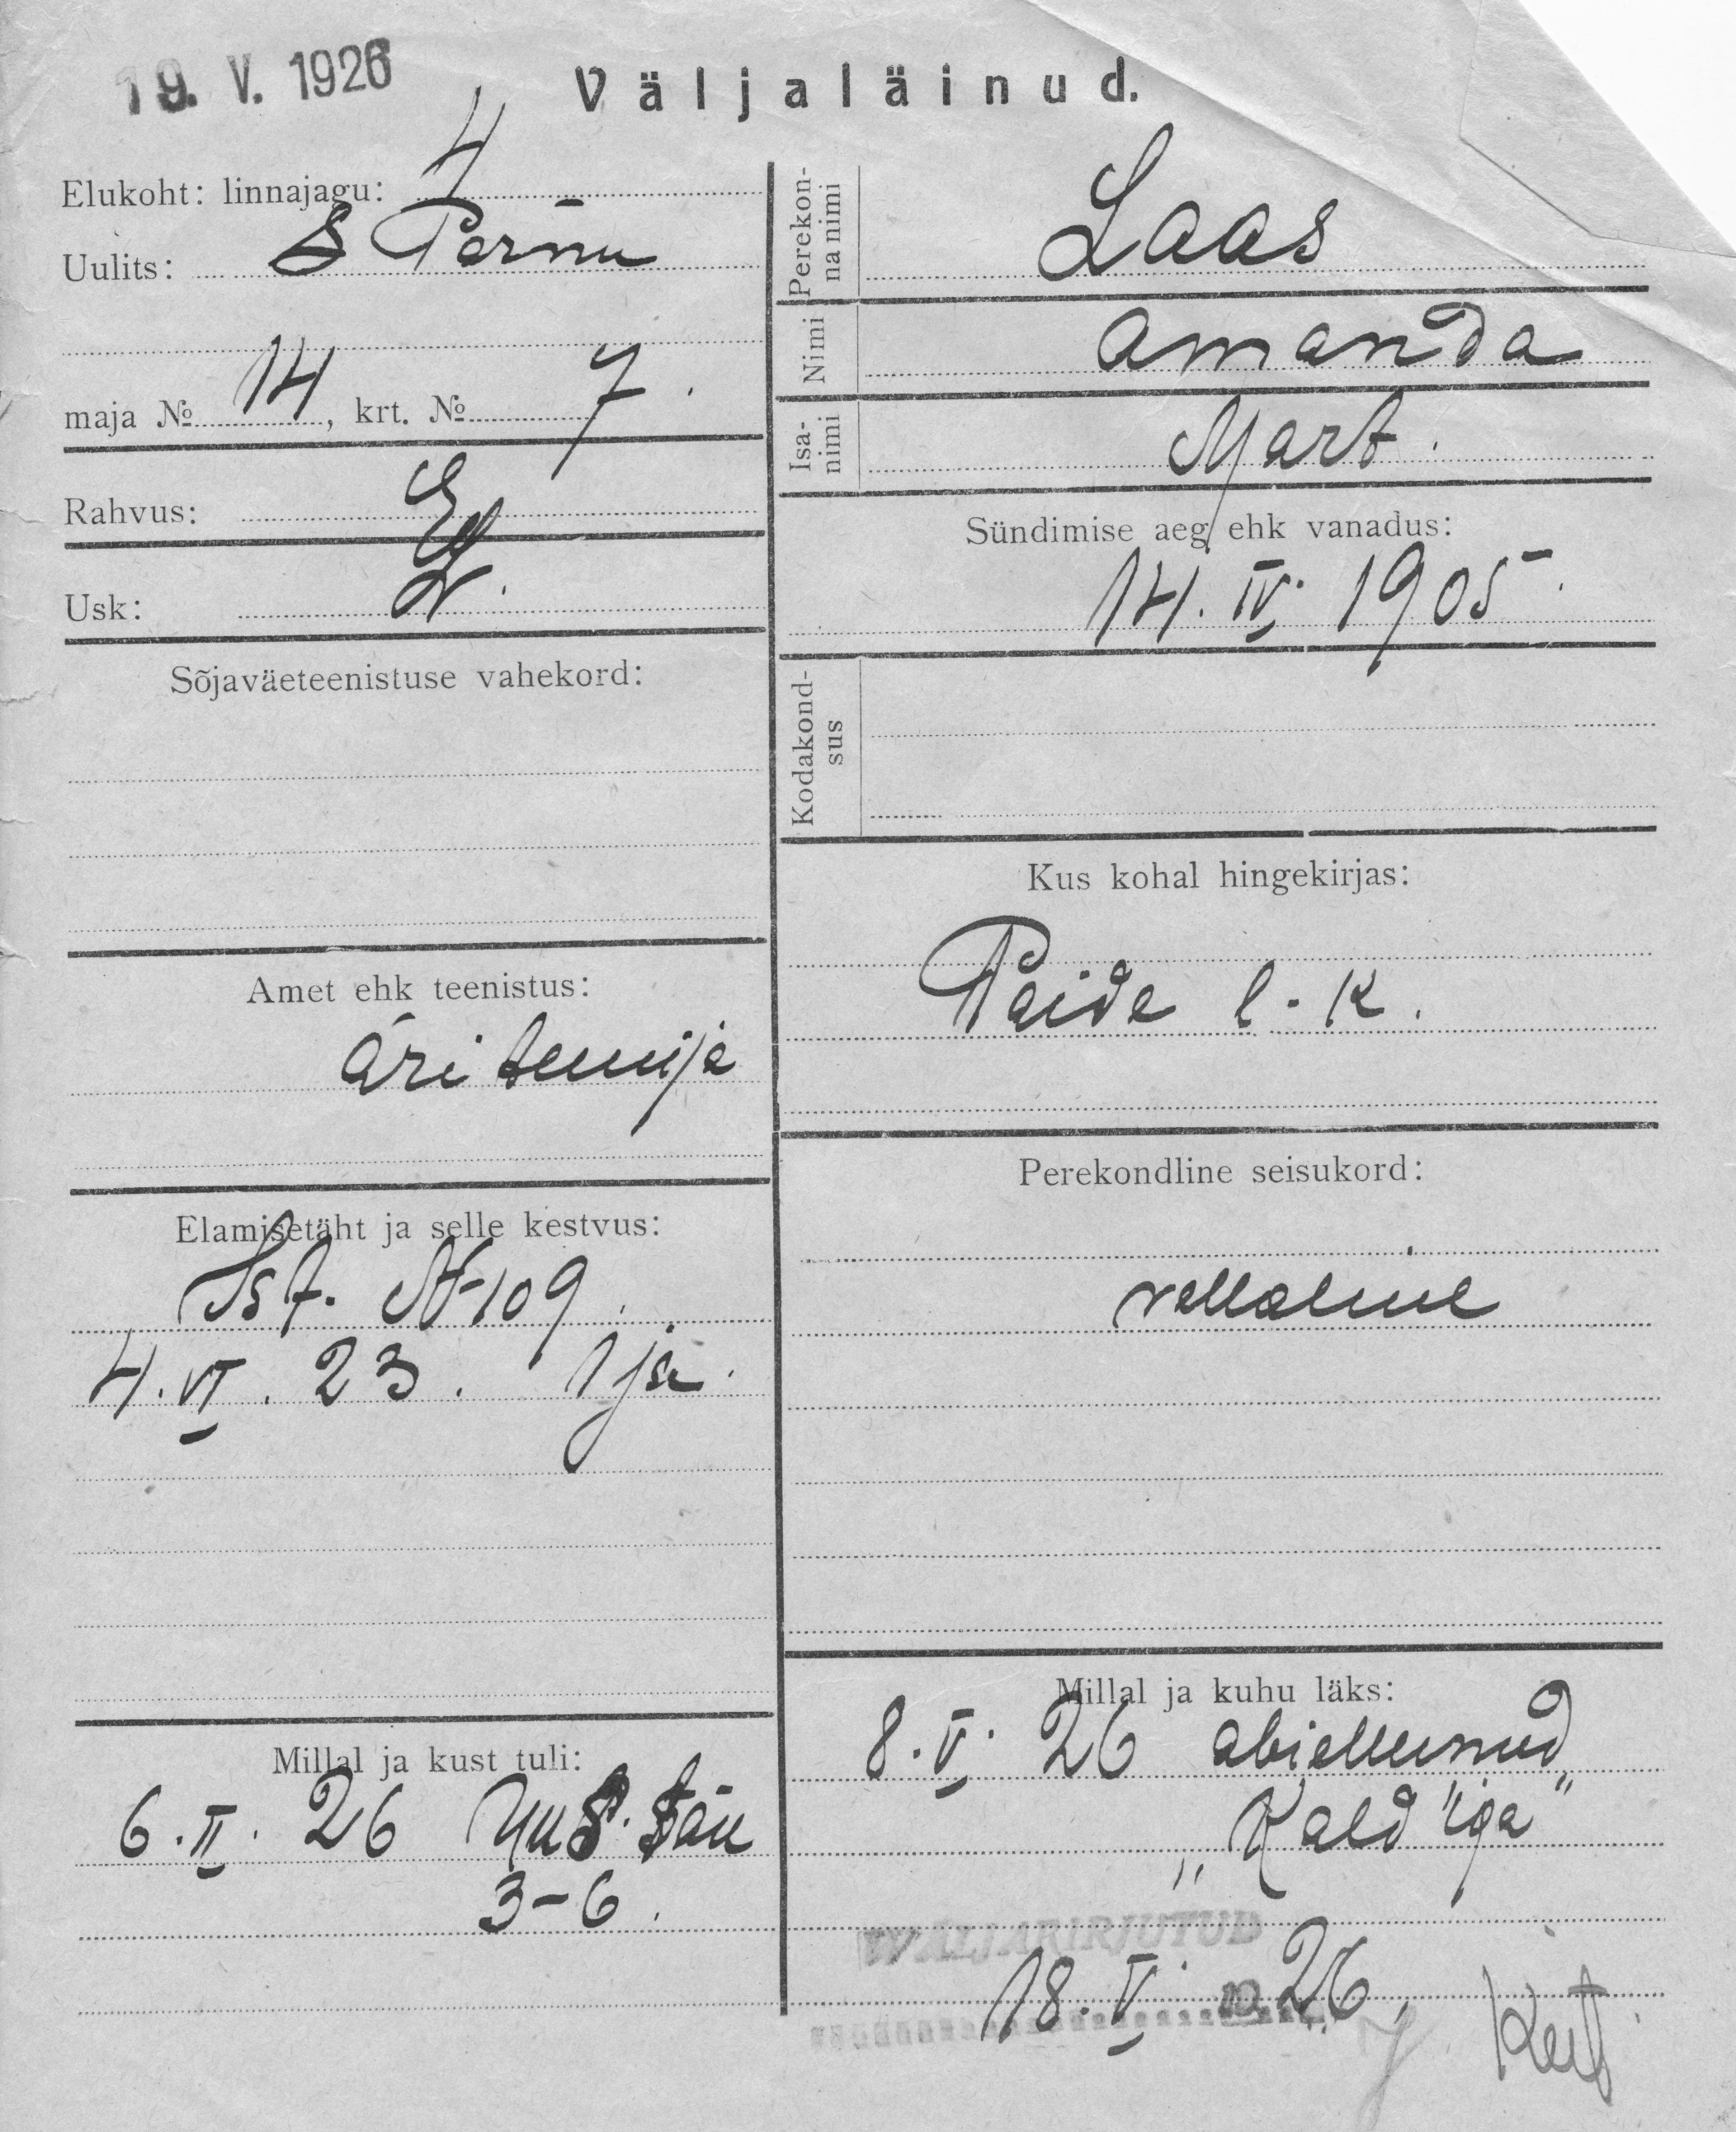 19. V. 1926
Väljaläinud.
Elukoht: linnajagu: 4
Uulits: S Pärnu
maja № 14, krt. № 7.
Rahvus: E
Usk: L.
Sõjaväeteenistuse vahekord:
Amet ehk teenistus:
Äriteenija
Elamisetäht ja selle kestvus:
Ist. № 109.
4. VI. 23. 1 ja.
Millal ja kust tuli:
6. II. 26
3-6.
Perekonna nimi
Laas
Nimi
Amanda
Isanimi
Mart.
Sündimise aeg ehk vanadus:
14. IV. 1905.
Kodakondsus
Kus kohal hingekirjas:
Paide l. k.
Perekondline seisukord:
vallaline
Millal ja kuhu läks:
8. V. 26 abiellunud
„Kald"iga"
WÄLJAKIRJUTUD
18. V. 26.